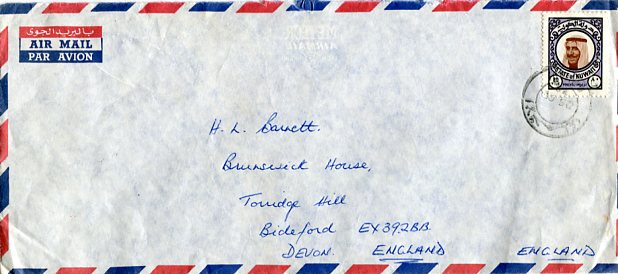 بالبريد الجوى
AIR MAIL
PAR AVION
STATE of KUWAIT
H. L. Barrett.
Brunswick House,
Torridge Hill
Bideford EX39.2BB.
DEVON. ENGLAND ENGLAND